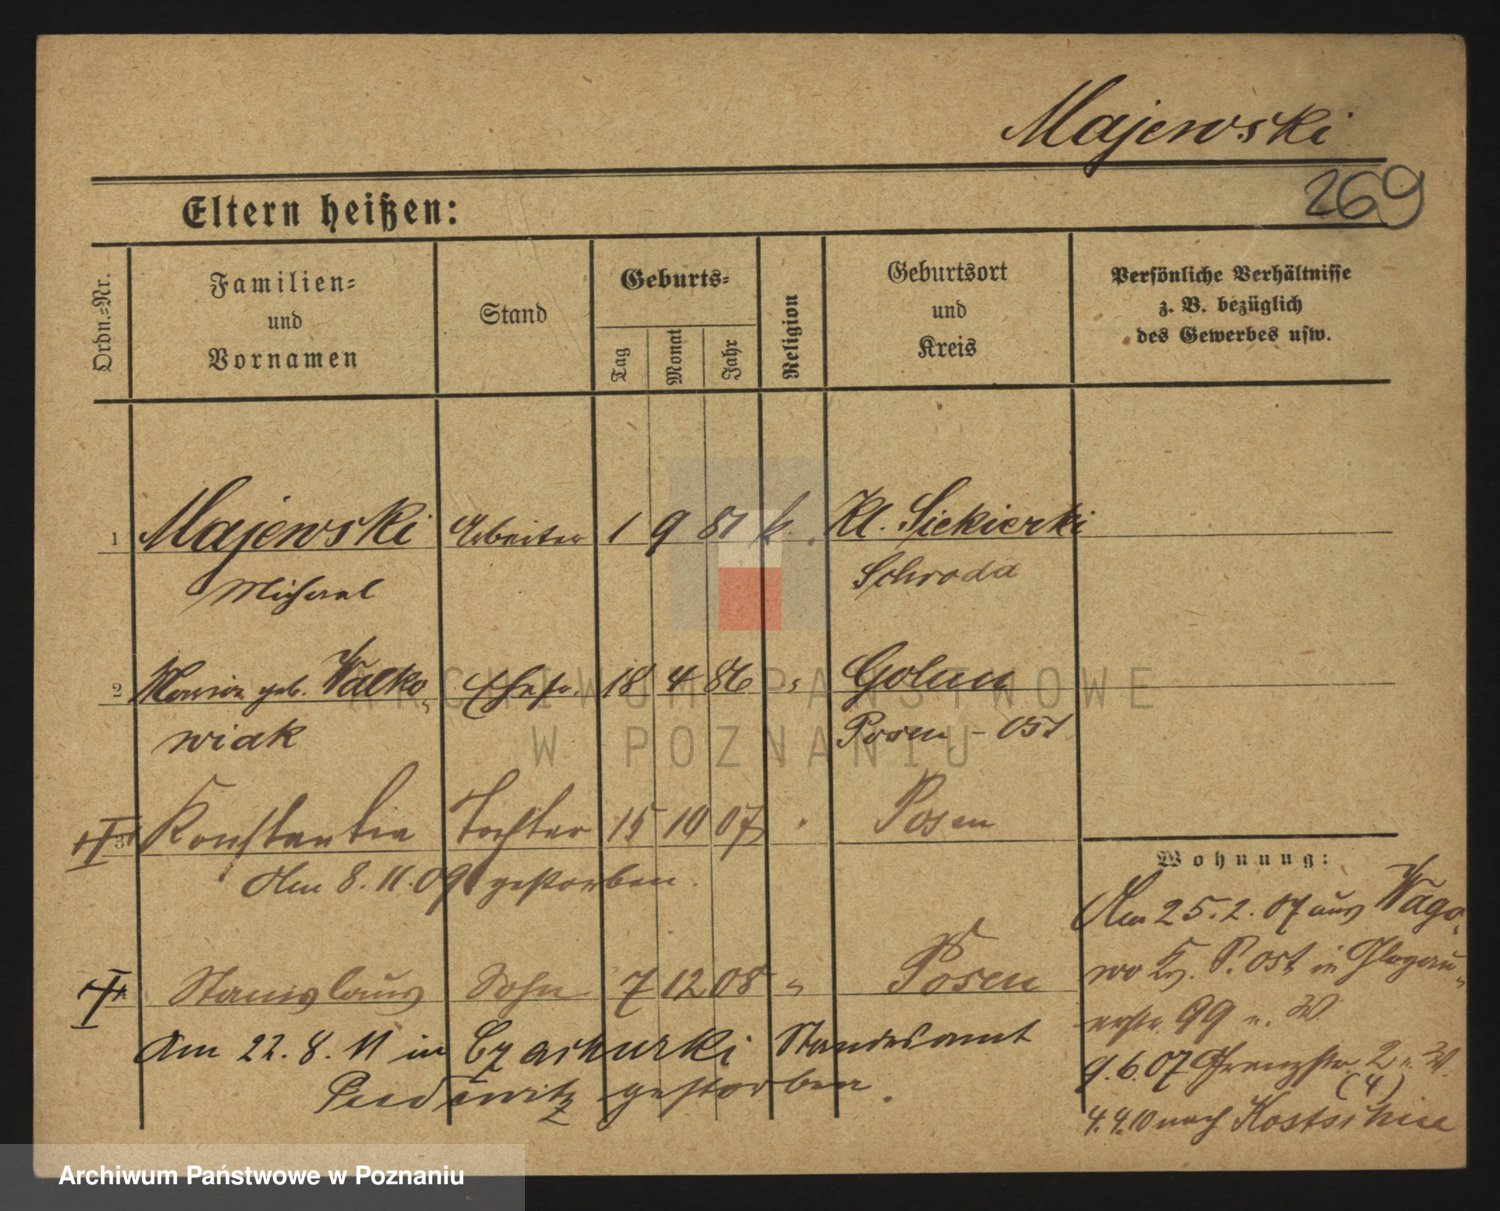 Majewski
269
Eltern heißen:
Ordn.-Nr.
Familien-
und
Vornamen
Stand
Geburts-
Tag
Monat
Jahr
Religion
Geburtsort
und
Kreis
Persönliche Verhältnisse
z. B. bezüglich
des Gewerbes usw.
1 Majewski Arbeiter 1 9 81 k. Kl. Siekierki
Michael Schroda
2 geb. Walko- Ehefr. 18 4 86 " Golun
wiak Posen-Ost
3 Konstantia Tochter 15 10 07 " Posen
Am 8.11.09 gestorben.
Stanislaus Sohn 7 12 08 " Posen
Am 22.8.11 in Czachurki Standesamt
Pudewitz gestorben.
Wohnung:
Am 25.2.07 aus Wago-
wo Kr. P. Ost in Glogau-
erstr. 99 u. W
9.6.07 Grenzstr. 2 W.
(4)
4.4.10 nach Kostschin
ARCHIWUM PAŃSTWOWE
W POZNANIU
Archiwum Państwowe w Poznaniu